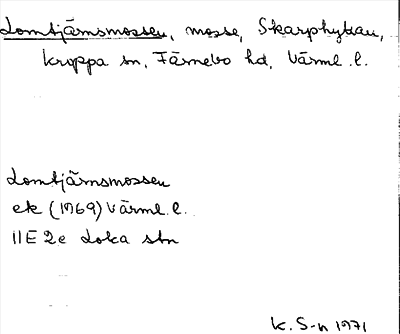 Lomtjärnsmossen, mosse, Skarphyttan,
Kroppa sn, Färnebo hd, Värml. l.
Lomtjärnsmossen
ek (1969) Värml. l.
11E 2e Loka stn
K. S-n 1971